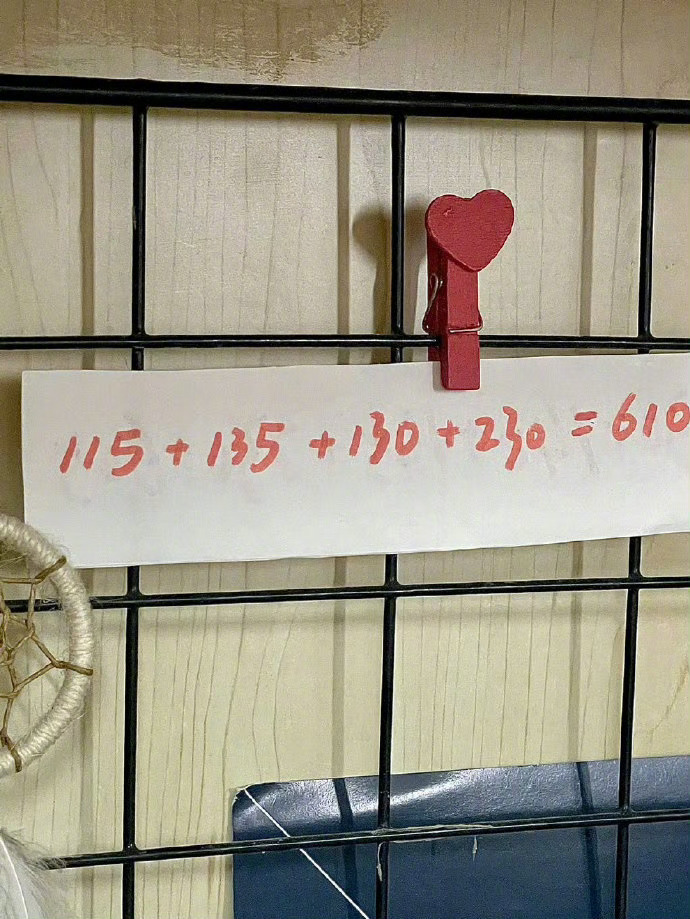 115 + 135 + 130 + 230 = 610